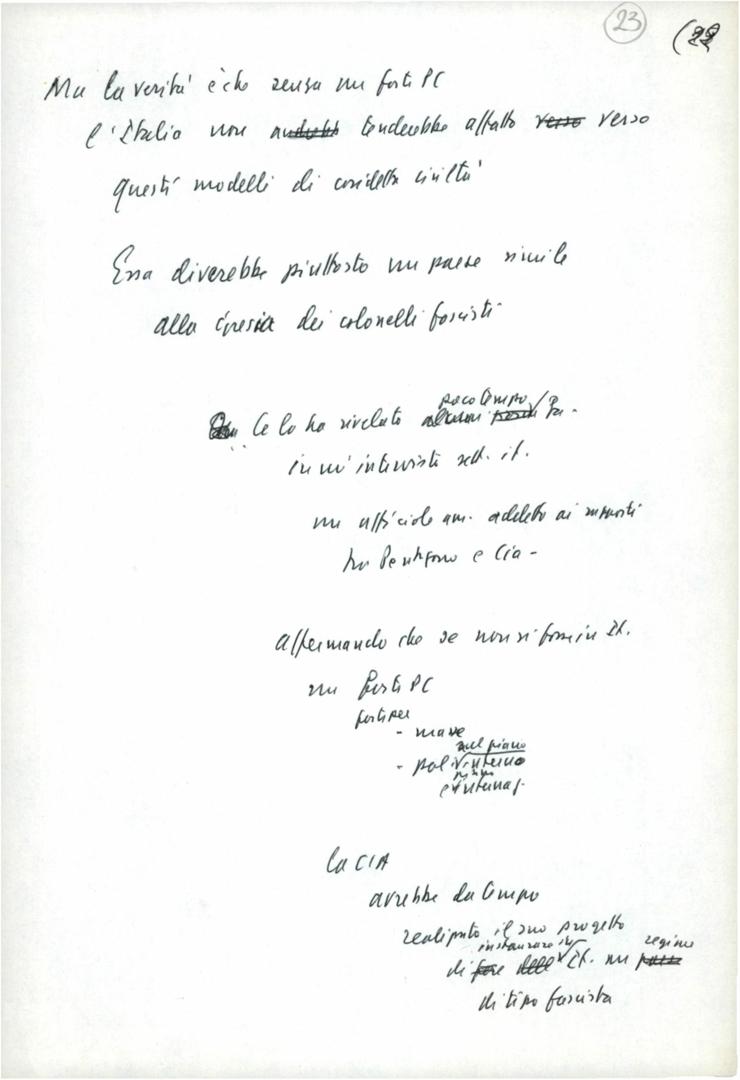 23
(22
Ma la verità è che senza un forte PC
l'Italia non andrebbe tenderebbe affatto verso verso
questi modelli di cosidetta civiltà
Essa diverebbe piuttosto un paese simile
alla Grecia dei colonelli fascisti
poco tempo
Ce lo ha rivelato alcuni fa -
in un'intervista sett. it.
un ufficiale am. addetto ai rapporti
tra Pentagono e Cia -
affermando che se non vi fosse in It.
un forte PC
forte per
- masse
sul piano
- pol. interno
piano
e internaz.
la CIA
avrebbe da tempo
realizzato il suo progetto
instaurare in regime
di fare delle It. un paese
di tipo fascista